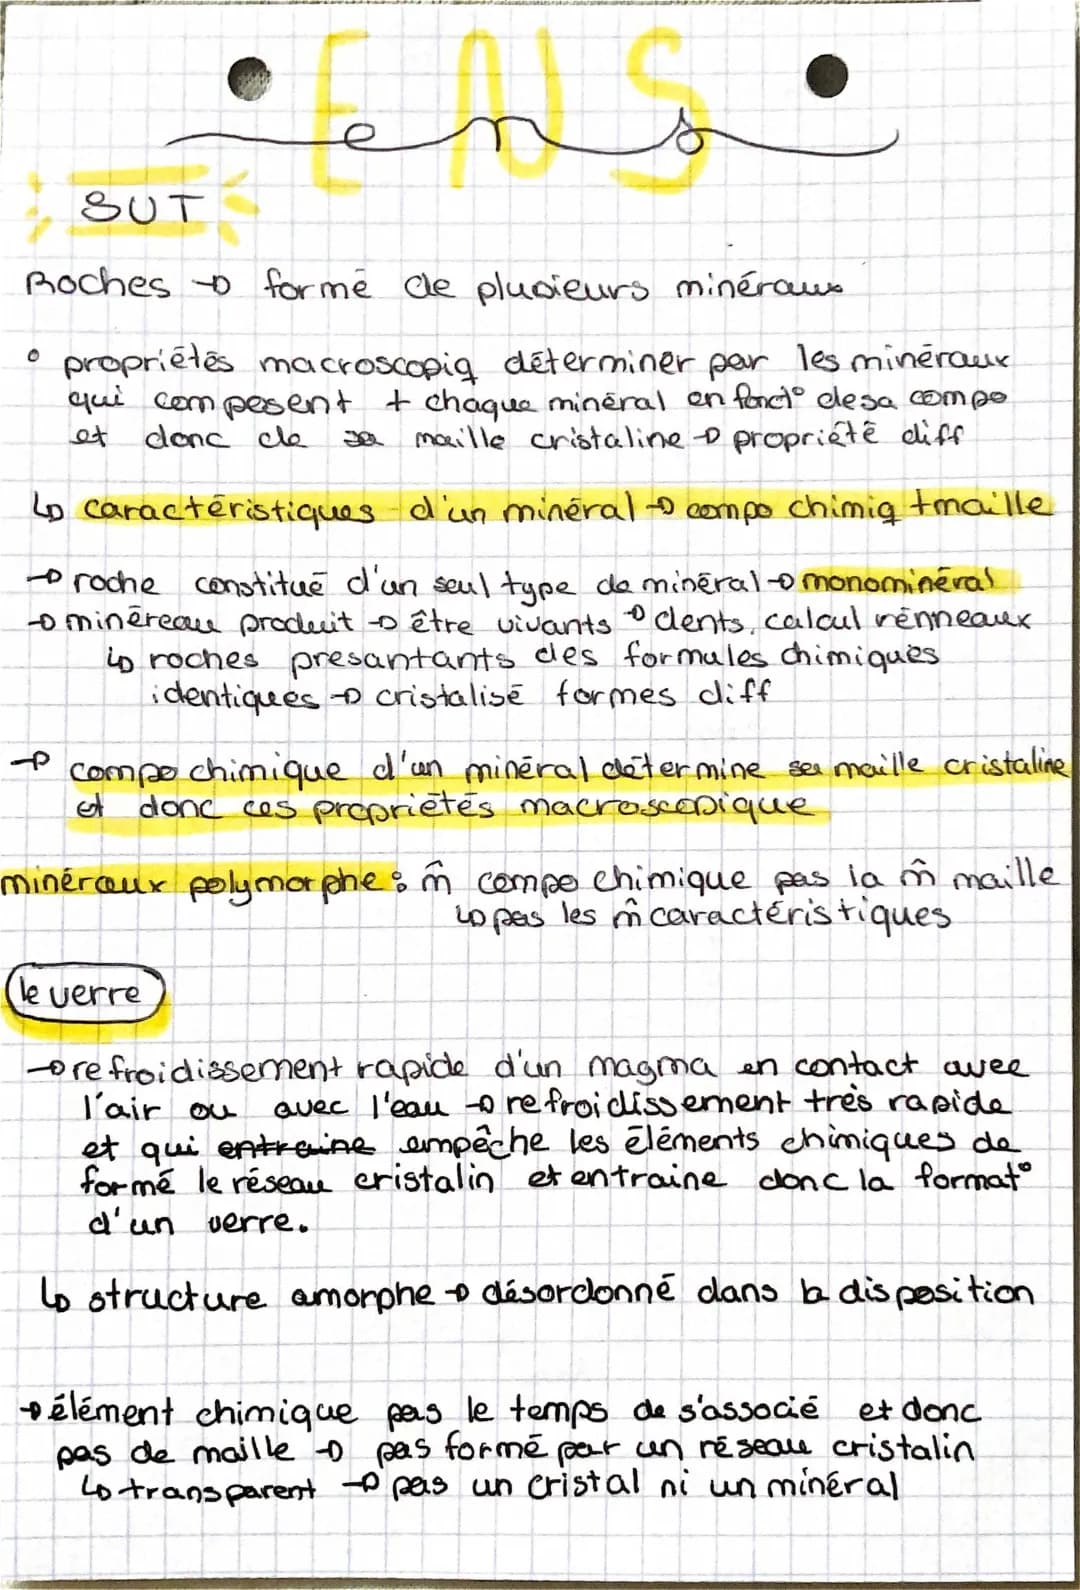 ENS
ens
SVT
Roches → formé de plusieurs minéraux
° propriétés macroscopiq déterminer par les minéraux
qui composent + chaque minéral en fonct° de sa compo
et donc de sa maille cristaline → propriété diff
↳ caractéristiques d'un minéral → compo chimiq + maille
→ roche constitué d'un seul type de minéral → monominéral
→ minéreau produit → être vivants → dents, calcul rénneaux
↳ roches presantants des formules chimiques
identiques → cristalisé formes diff
→ compo chimique d'un minéral détermine sa maille cristaline
et donc ces propriétés macroscopique
minéraux polymorphe : m̂ compo chimique pas la m̂ maille
↳ pas les m̂ caractéristiques
le verre
→ refroidissement rapide d'un magma en contact avec
l'air ou avec l'eau → refroidissement très rapide
et qui entraine empêche les éléments chimiques de
formé le réseau cristalin et entraine donc la format°
d'un verre.
↳ structure amorphe → désordonné dans la disposition
→ élément chimique pas le temps de s'associé et donc
pas de maille → pas formé par un réseau cristalin
↳ transparent → pas un cristal ni un minéral